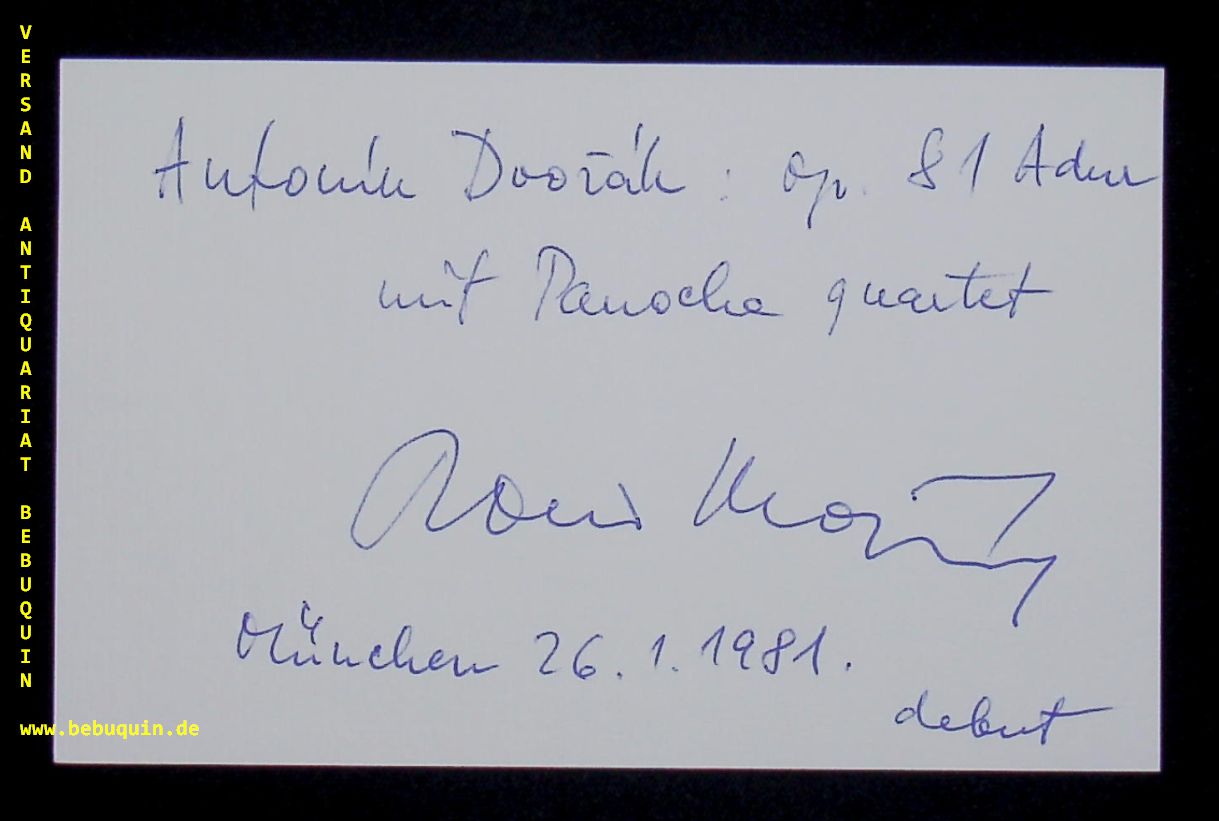 VERSAND ANTIQUARIAT BEBUQUIN
www.bebuquin.de
Antonín Dvořák : op. 81 Adur
mit Panocha quartet
München 26.1.1981.
debut